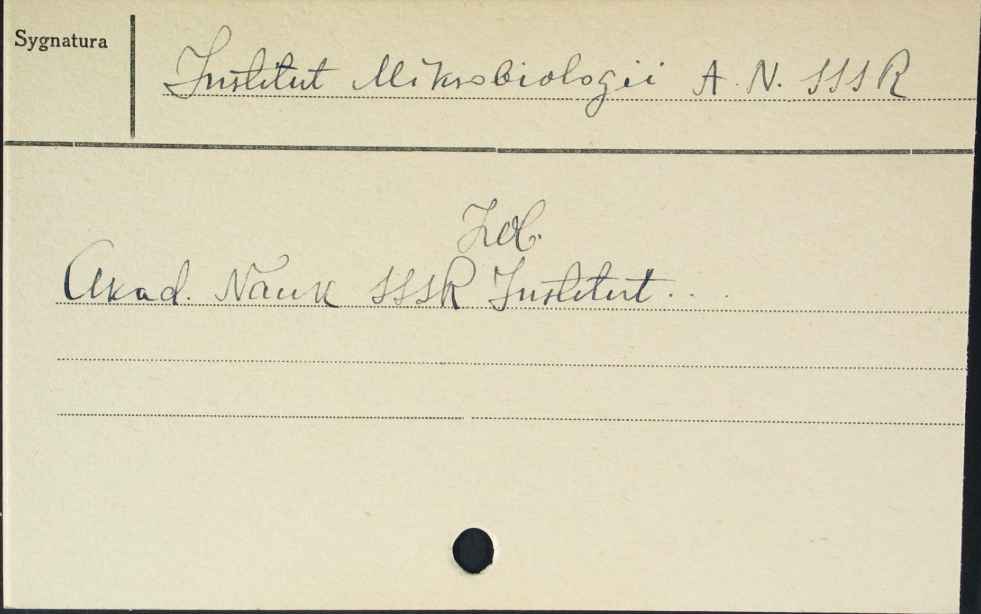 Sygnatura
Institut Mikrobiologii A. N. SSSR
Zob.
Akad. Nauk SSSR Institut...